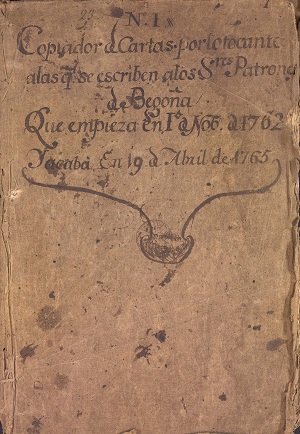 33
N. 1
1
Copiador d Cartas. por lo tocante
a las q̃ se escriben a los S.res Patrones
d Begoña
Que empieza En 1º d Nob. d 1762
Yacaba En 19 d Abril de 1765